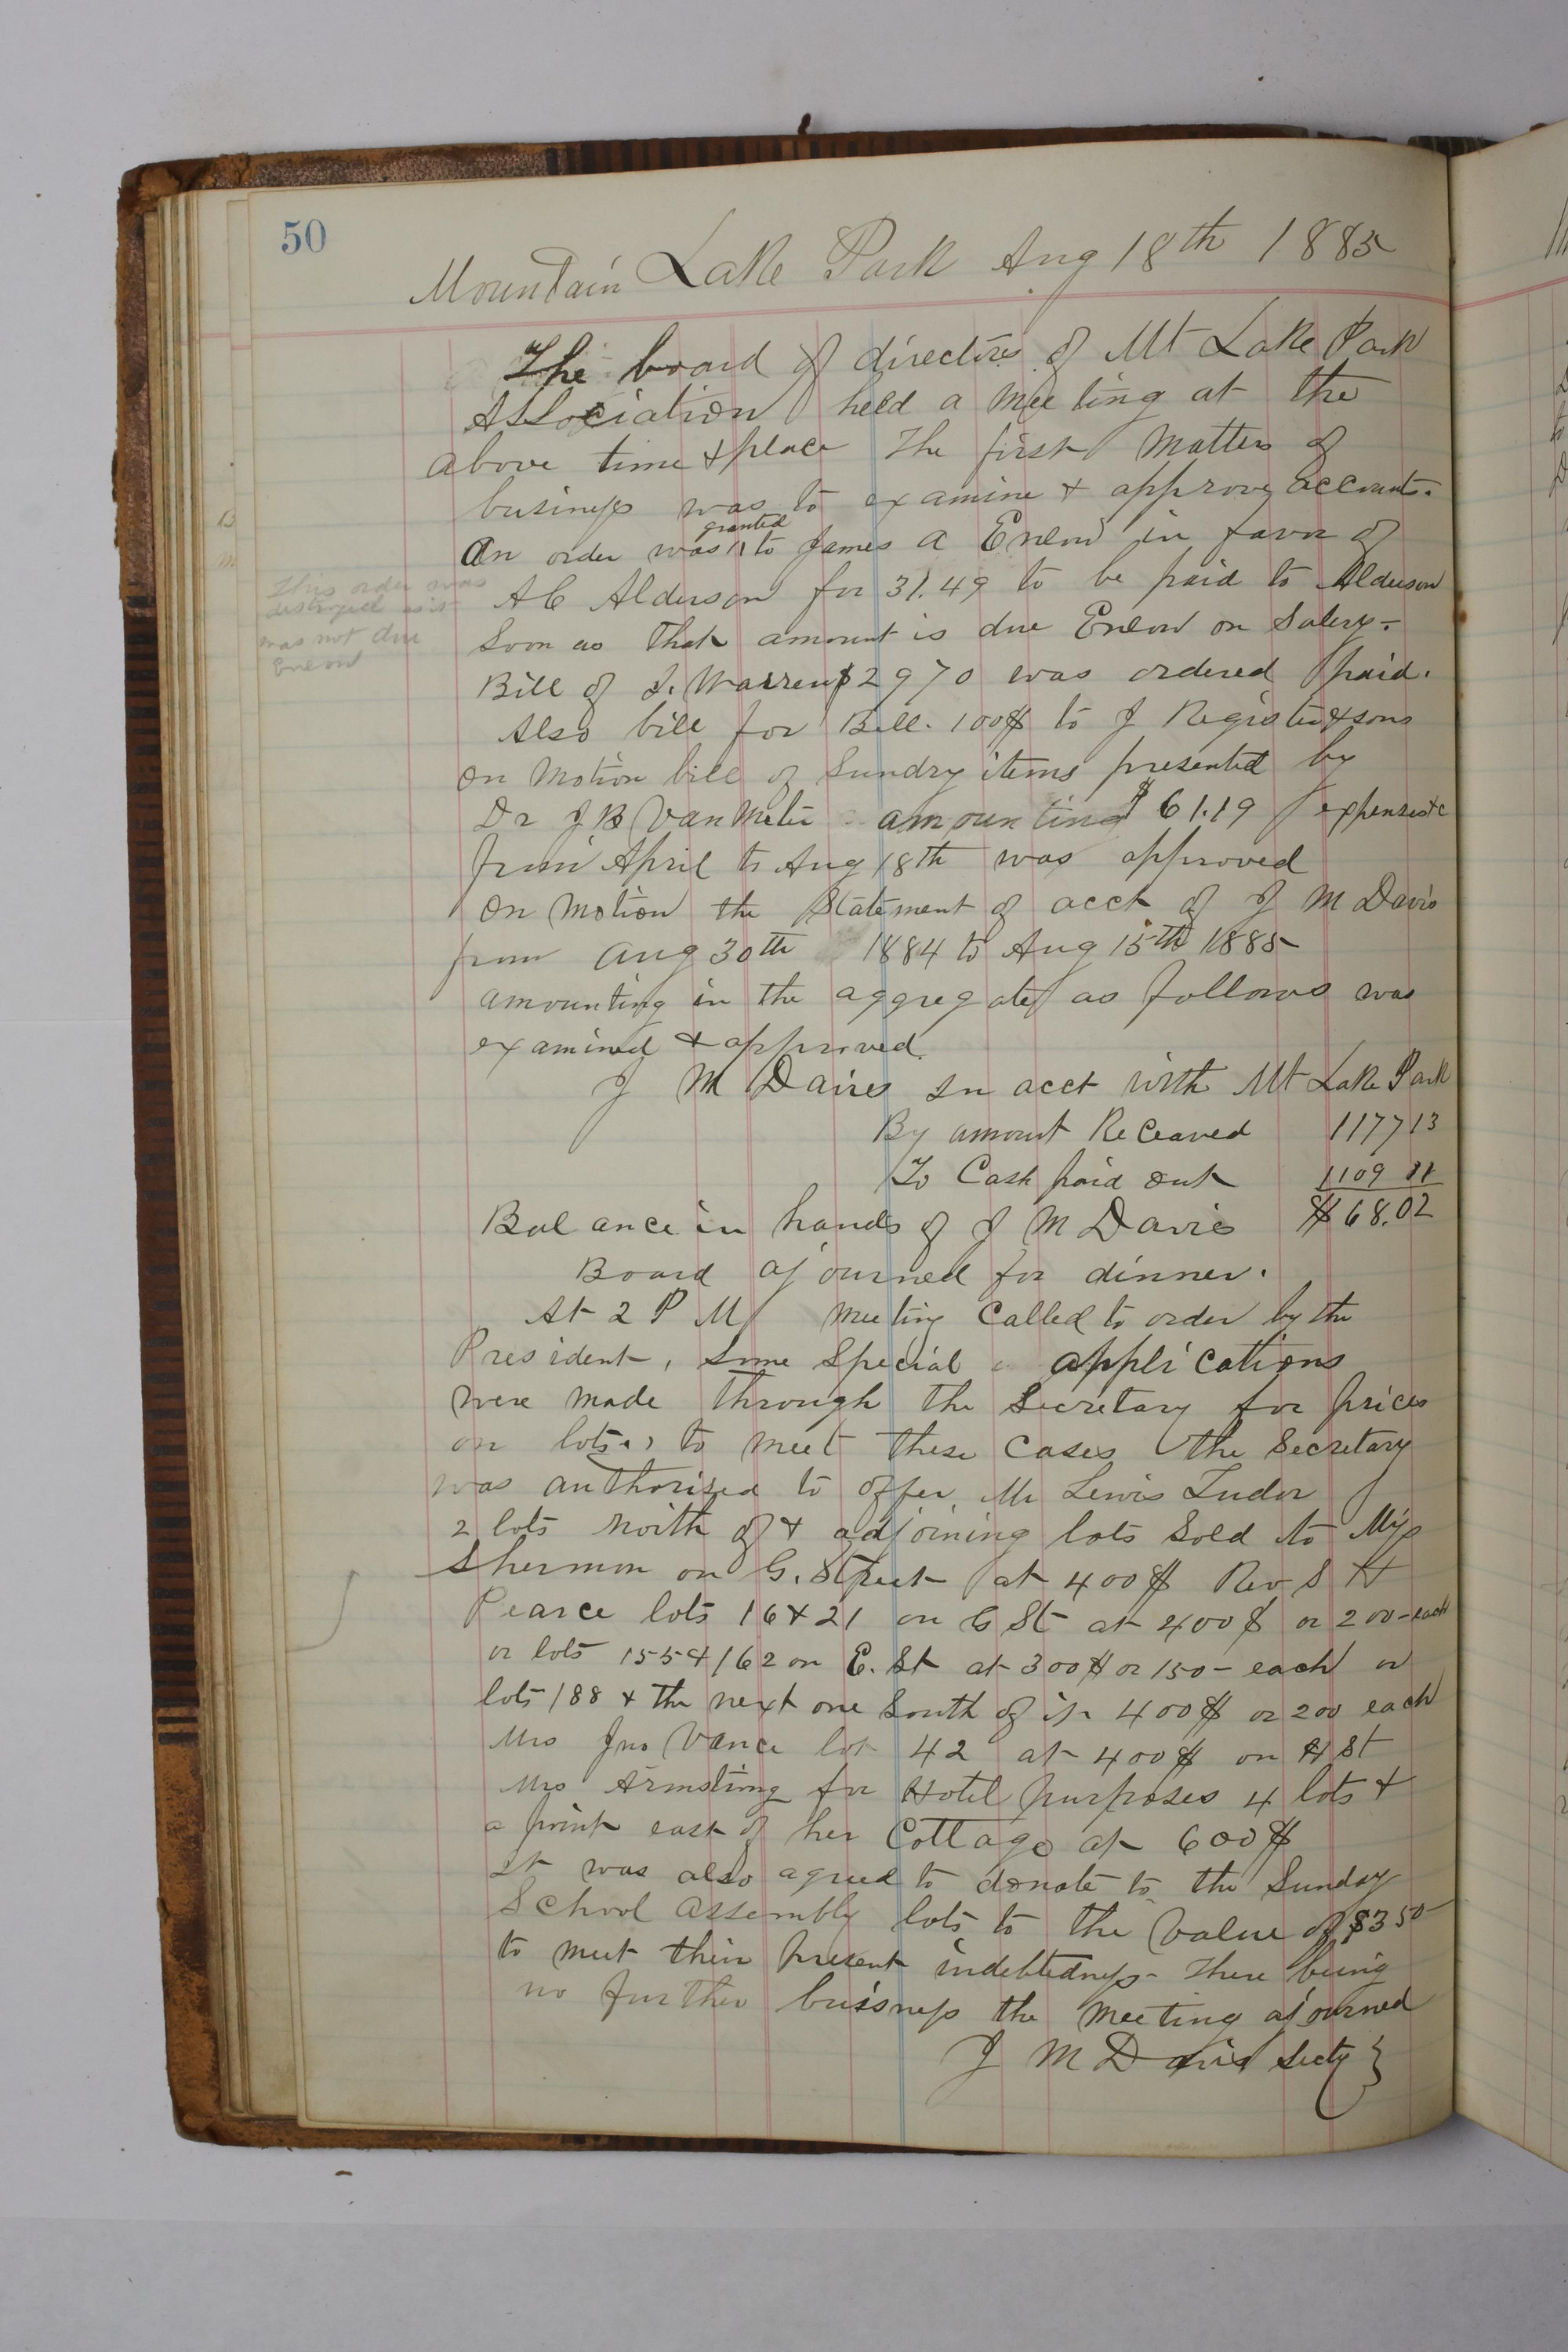 50
Mountain Lake Park Aug 18th 1885
The board of directors of Mt Lake Park
Association held a meeting at the
above time & place The first matter of
business was to examine & approve accounts.
An order was granted to James A Enlow in favor of
A C Alderson for 31.49 to be paid to Alderson
This order was
destroyed as it
was not due
Enlow
soon as that amount is due Enlow on Salery-
Bill of S. Warren $2970 was ordered paid.
Also bill for Bell. 100$ to J Register & sons
on motion bill of sundry items presented by
Dr J B Van Meter amounting $61.19 expenses &c
from April to Aug 18th was approved
on motion the Statement of acct of J M Davis
from Aug 30th 1884 to Aug 15th 1885
amounting in the aggregate as follows was
examined & approved.
J M Davis in acct with Mt Lake Park
By amount Receaved 117713
To Cash paid out 1109 11
Balance in hands of J M Davis $68.02
Board ajourned for dinner.
At 2 P M meeting called to order by the
President, some special applications
were made through the Secretary for prices
on lots., to meet these cases the Secretary
was authorised to offer Mr Lewis Tudor
2 lots north of & adjoining lots sold to Miss
Shermon on G. Street at 400$ Rev S H
Pearce lots 16 & 21 on G St at 400$ or 200- each
or lots 155 & 162 on E. St at 300$ or 150- each or
lots 188 & the next one South of it 400$ or 200 each
Mrs Jno Vance lot 42 at 400$ on H St
Mrs Armstrong for Hotel purposes 4 lots &
a point east of her Cottage at 600$
It was also agreed to donate to the Sunday
School Assembly lots to the value of $350-
to meet their present indebtedness- There being
no further buisness the meeting ajourned
J M Davis Secty }